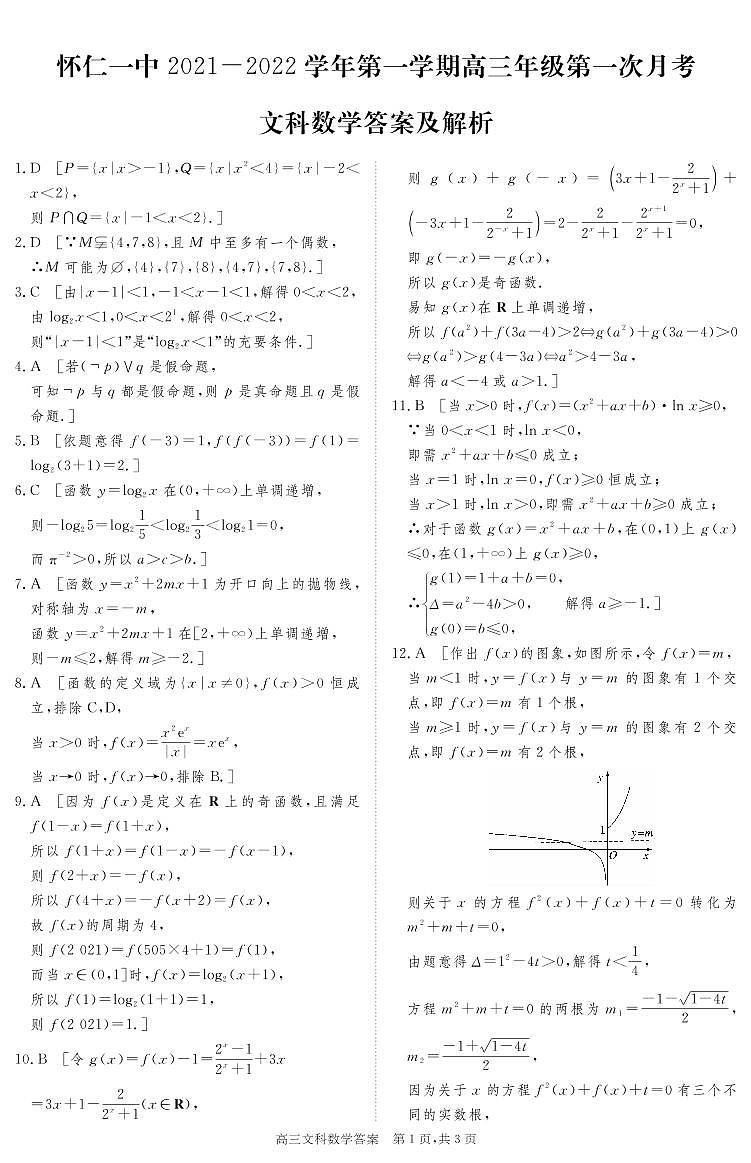 怀仁一中 2021－2022 学年第一学期高三年级第一次月考
文科数学答案及解析
1. D [P={x|x>-1},Q={x|x²<4}={x|-2<
x<2},
则 P∩Q={x|-1<x<2}.]
2. D [∵M⫋{4,7,8},且 M 中至多有一个偶数,
∴M 可能为∅,{4},{7},{8},{4,7},{7,8}.]
3. C [由|x-1|<1,-1<x-1<1,解得 0<x<2,
由 log₂x<1,0<x<2¹,解得 0<x<2,
则“|x-1|<1”是“log₂x<1”的充要条件.]
4. A [若(¬p)∨q 是假命题,
可知¬p 与 q 都是假命题,则 p 是真命题且 q 是假
命题.]
5. B [依题意得 f(-3)=1,f(f(-3))=f(1)=
log₂(3+1)=2.]
6. C [函数 y=log₂x 在(0,+∞)上单调递增,
则-log₂5=log₂1/5<log₂1/3<log₂1=0,
而 π⁻²>0,所以 a>c>b.]
7. A [函数 y=x²+2mx+1 为开口向上的抛物线,
对称轴为 x=-m,
函数 y=x²+2mx+1 在[2,+∞)上单调递增,
则-m≤2,解得 m≥-2.]
8. A [函数的定义域为{x|x≠0},f(x)>0 恒成
立,排除 C,D,
当 x>0 时,f(x)=x²eˣ/|x|=xeˣ,
当 x→0 时,f(x)→0,排除 B.]
9. A [因为 f(x)是定义在 R 上的奇函数,且满足
f(1-x)=f(1+x),
所以 f(1+x)=f(1-x)=-f(x-1),
则 f(2+x)=-f(x),
所以 f(4+x)=-f(x+2)=f(x),
故 f(x)的周期为 4,
则 f(2 021)=f(505×4+1)=f(1),
而当 x∈(0,1]时,f(x)=log₂(x+1),
所以 f(1)=log₂(1+1)=1,
则 f(2 021)=1.]
10. B [令 g(x)=f(x)-1=(2ˣ-1)/(2ˣ+1)+3x
=3x+1-2/(2ˣ+1)(x∈R),
则 g(x)+g(-x)=(3x+1-2/(2ˣ+1))+
(-3x+1-2/(2⁻ˣ+1))=2-2/(2ˣ+1)-2ˣ⁺¹/(2ˣ+1)=0,
即 g(-x)=-g(x),
所以 g(x)是奇函数.
易知 g(x)在 R 上单调递增,
所以 f(a²)+f(3a-4)>2⇔g(a²)+g(3a-4)>0
⇔g(a²)>g(4-3a)⇔a²>4-3a,
解得 a<-4 或 a>1.]
11. B [当 x>0 时,f(x)=(x²+ax+b)·ln x≥0,
∵当 0<x<1 时,ln x<0,
即需 x²+ax+b≤0 成立;
当 x=1 时,ln x=0,f(x)≥0 恒成立;
当 x>1 时,ln x>0,即需 x²+ax+b≥0 成立;
∴对于函数 g(x)=x²+ax+b,在(0,1)上 g(x)
≤0,在(1,+∞)上 g(x)≥0,
g(1)=1+a+b=0,
∴{Δ=a²-4b>0, 解得 a≥-1.]
g(0)=b≤0,
12. A [作出 f(x)的图象,如图所示,令 f(x)=m,
当 m<1 时,y=f(x)与 y=m 的图象有 1 个交
点,即 f(x)=m 有 1 个根,
当 m≥1 时,y=f(x)与 y=m 的图象有 2 个交
点,即 f(x)=m 有 2 个根,
y
1
y=m
O x
则关于 x 的方程 f²(x)+f(x)+t=0 转化为
m²+m+t=0,
由题意得 Δ=1²-4t>0,解得 t<1/4,
方程 m²+m+t=0 的两根为 m₁=(-1-√(1-4t))/2,
m₂=(-1+√(1-4t))/2,
因为关于 x 的方程 f²(x)+f(x)+t=0 有三个不
同的实数根,
高三文科数学答案 第 1 页,共 3 页